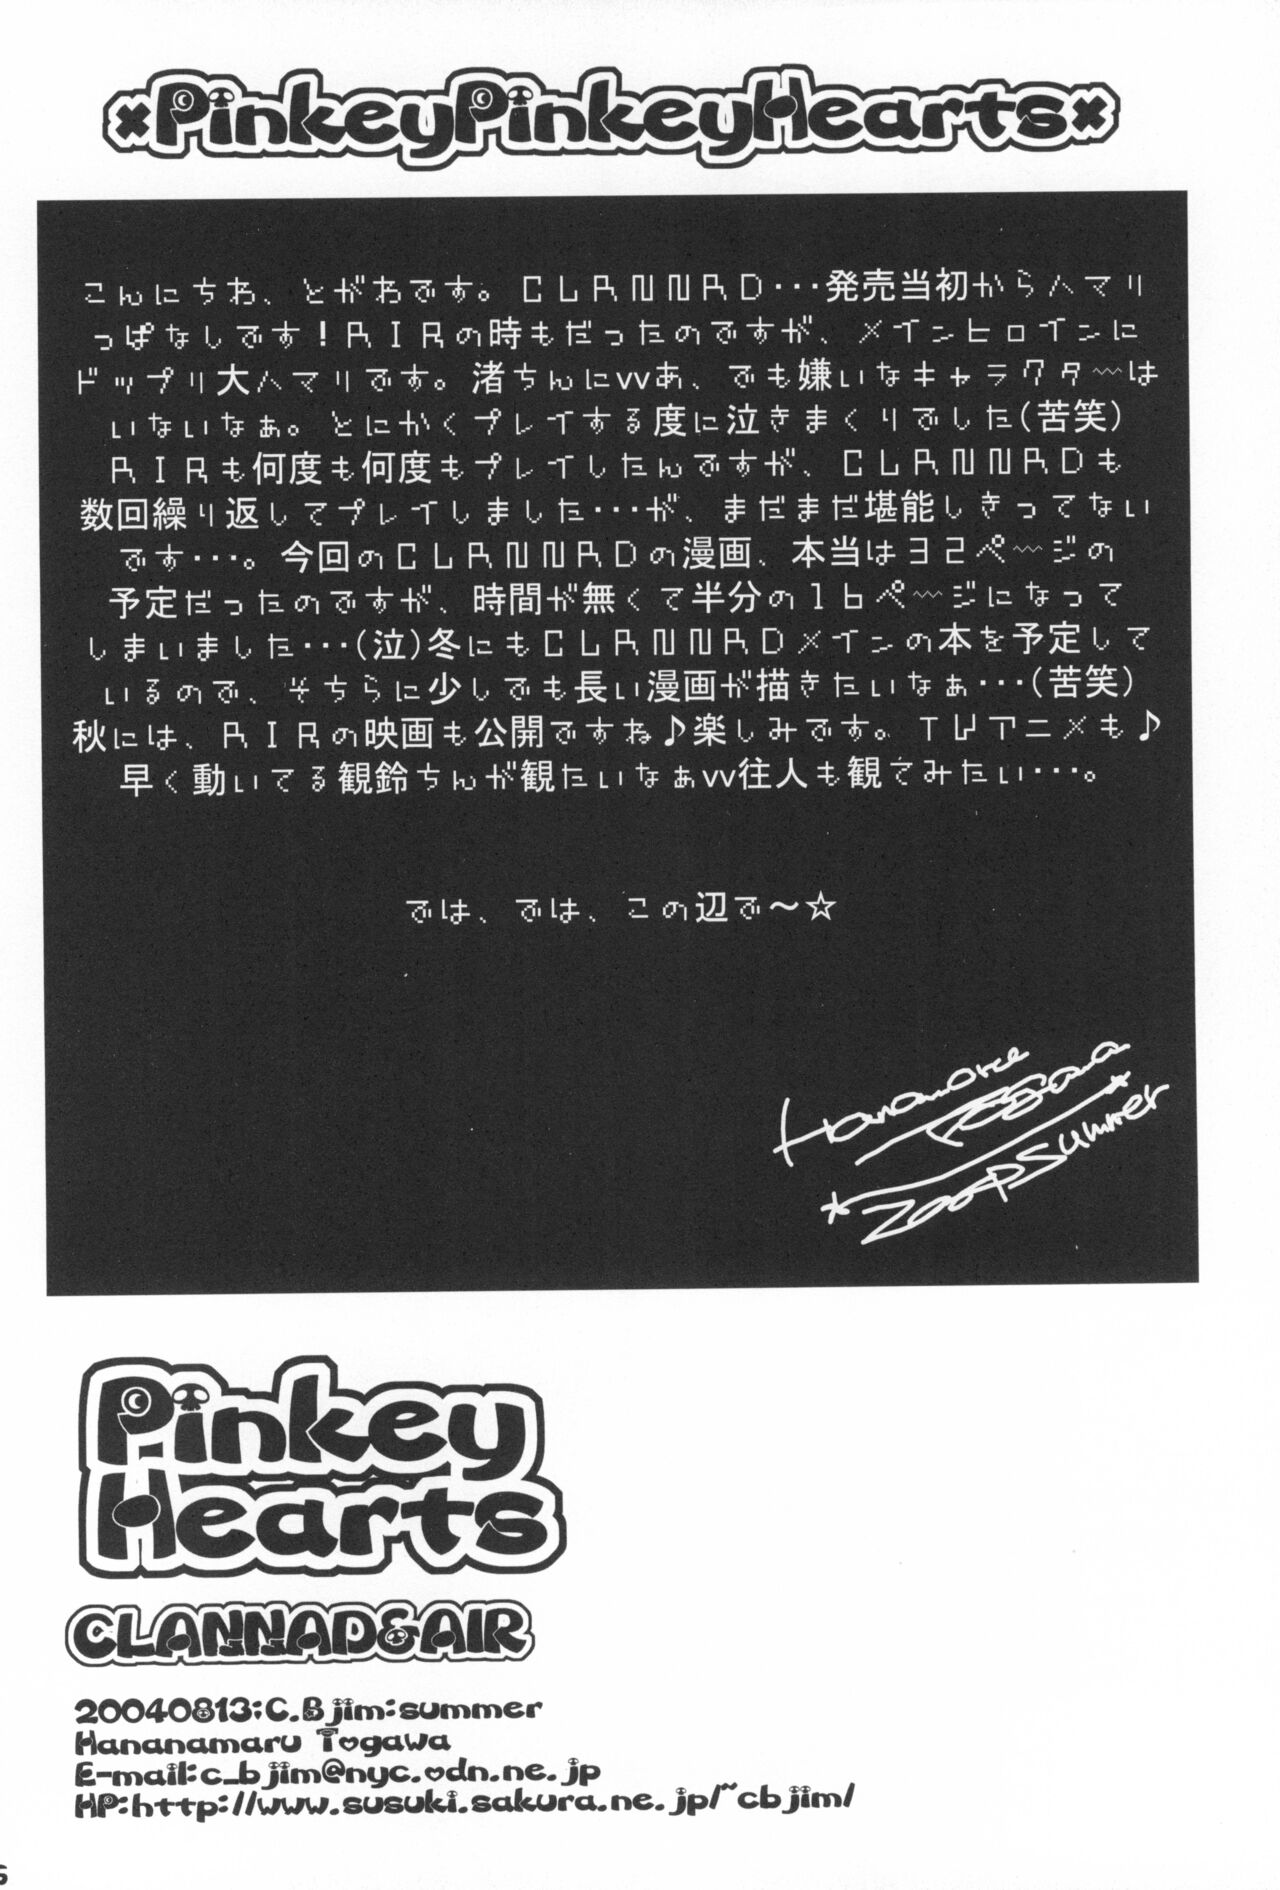 ×PinkeyPinkeyHearts×
こんにちわ、とがわです。CLANNAD･･･発売当初からハマリ
っぱなしです！AIRの時もだったのですが、メインヒロインに
ドップリ大ハマリです。渚ちんにvvあ、でも嫌いなキャラクターは
いないなぁ。とにかくプレイする度に泣きまくりでした(苦笑)
AIRも何度も何度もプレイしたんですが、CLANNADも
数回繰り返してプレイしました･･･が、まだまだ堪能しきってない
です･･･。今回のCLANNADの漫画、本当は32ページの
予定だったのですが、時間が無くて半分の16ページになって
しまいました･･･(泣)冬にもCLANNADメインの本を予定して
いるので、そちらに少しでも長い漫画が描きたいなぁ･･･(苦笑)
秋には、AIRの映画も公開ですね♪楽しみです。TVアニメも♪
早く動いてる観鈴ちんが観たいなぁvv往人も観てみたい･･･。
では、では、この辺で～☆
Togawa
2004 Summer
Pinkey
Hearts
CLANNAD&AIR
20040813:C.Bjim:summer
Hananamaru Togawa
E-mail:c_bjim@nyc.odn.ne.jp
HP:http://www.susuki.sakura.ne.jp/~cbjim/